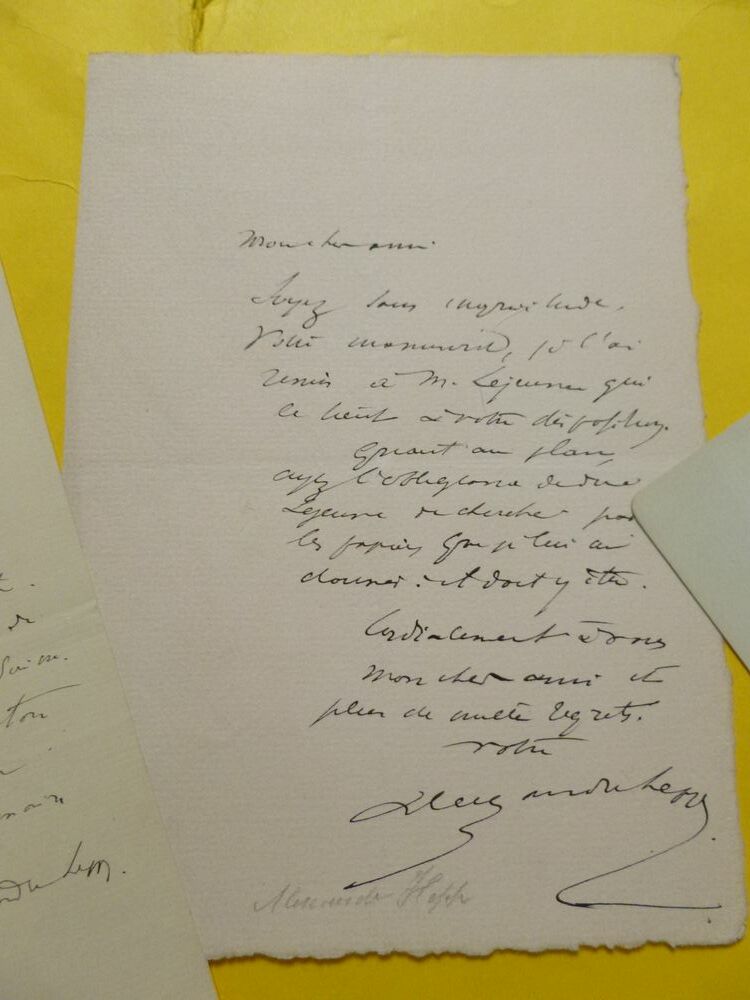 Mon cher ami
Soyez sans inquiétude.
Votre manuscrit, je l'ai
remis à M. Lejeune qui
le tient à votre disposition.
Quant au plan,
ayez l'obligeance de dire
Lejeune de chercher
les papiers que je lui ai
donnés : il doit y être.
Cordialement à vous
mon cher ami et
plein de mille regrets.
votre
Alexandre Hepp
Alexandre Hepp
de
ton